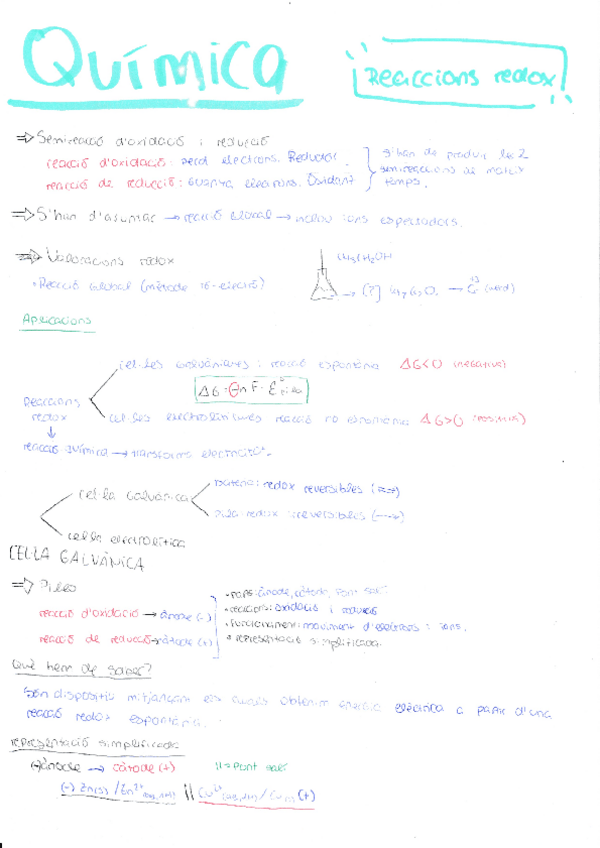 Química
Reaccions redox
⇒ Semireacció d'oxidació i reducció
reacció d'oxidació: perd electrons. Reductor.
reacció de reducció: guanya electrons. Oxidant
S'han de produir les 2
semireaccions al mateix
temps.
⇒ S'han d'ajuntar → reacció global → inclou ions espectadors.
⇒ Valoracions redox
• Reacció Global (mètode ió-electró)
→ [?] → Cr+3 (verd)
Aplicacions
cel·les galvàniques: reacció espontània ΔG<0 (negativa)
ΔG = -n·F·E°pila
Reaccions
redox
cel·les electrolítiques reacció no espontània ΔG>0 (positiva)
↓
reacció química → transforma electricitat.
cel·la galvànica
bateria: redox reversibles (⇌)
pila: redox irreversibles (→)
cel·la electrolítica
CEL·LA GALVÀNICA
⇒ Piles
• parts: ànode, càtode, pont salí
• reaccions: oxidació i reducció
• funcionament: moviment d'electrons i ions.
• representació simplificada.
reacció d'oxidació → ànode (-)
reacció de reducció → càtode (+)
Què hem de saber?
Són dispositiu mitjançant els quals obtenim energia elèctrica a partir d'una
reacció redox espontània.
representació simplificada
(-) ànode → càtode (+) || = Pont salí
(-) Zn(s) / Zn2+ || Cu2+ / Cu(s) (+)